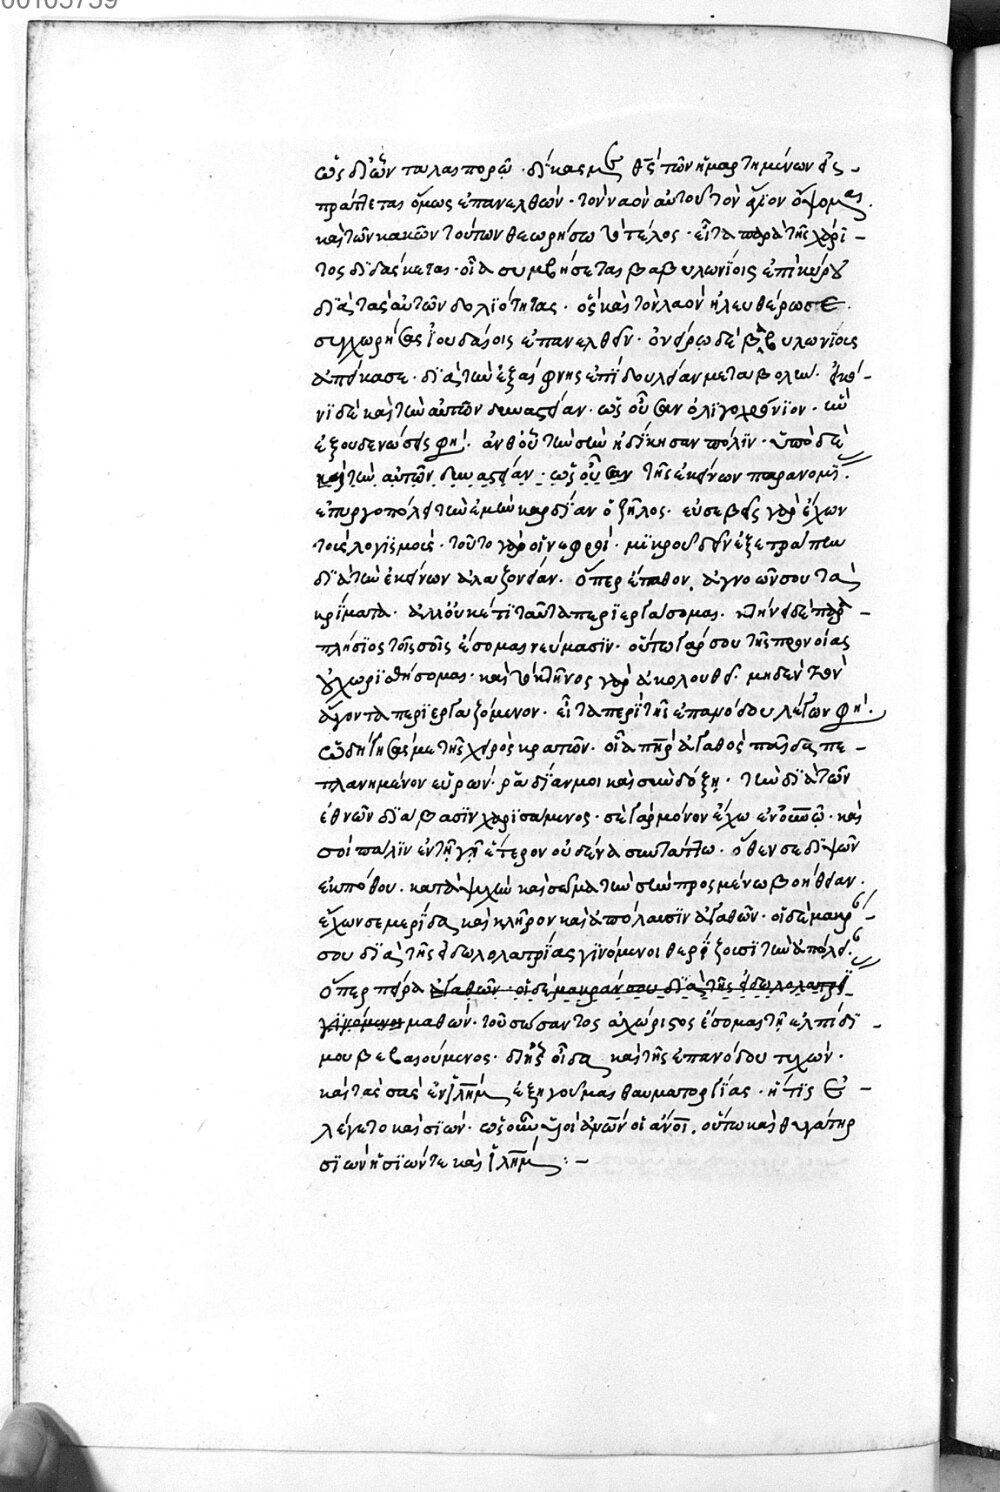 ὡς δι' ὧν ταλαιπορῶ · δίκας μ θς τῶν ἡμαρτημένων εἰσ-
πράττεται ὅμως ἐπανελθὼν · τὸν ναὸν αὐτοῦ τὸν ἅγιον ὄψομαι.
καὶ τῶν κακῶν τούτων θεωρήσω τὸ τέλος · εἶτα παρὰ τῆς χάρι-
τος διδάσκεται · οἷα συμβήσεται βαβυλωνίοις ἐπὶ κύρου
διὰ τὰς αὐτῶν δολιότητας · ὃς καὶ τὸν λαὸν ἠλευθέρωσε.
συγχωρήσας ἰουδαίοις ἐπανελθεῖν · ὀνείρω δὲ βαβυλωνίοις
ἀπείκασε · διὰ τὴν ἐξαίφνης ἐπιδουλείαν μεταβολὴν ·
δὲ καὶ τὴν αὐτῶν δυναστείαν · ὡς οὖσαν ὀλιγοχρόνιον · ἣν
ἐξουδενώσεις φη · ἀνθ' οὗ τὴν σὴν ἠδίκησαν πόλιν · ὑπὸ δὲ
καὶ τὴν αὐτῶν δυναστείαν · ὡς οὖσαν τῆς ἐκείνων παρανομι.
ἐπυργοπόλει τὴν ἐμὴν καρδίαν ὁ ζῆλος · εὐσεβεῖς γὰρ ἔχων
τοὺς λογισμούς · τοῦτο γὰρ οἱ νεφροί · μικροῦ δεῖν ἐξετράπην
διὰ τὴν ἐκείνων ἀλαζονείαν · ὅπερ ἔπαθον, ἀγνοῶν σου τὰ
κρίματα · ἀλλ' οὐκέτι ταῦτα περιεργάσομαι ·
πλησίος τοῖς σοῖς ἕσομαι νεύμασιν · οὔπω γάρ σου τῆς προνοίας
χωρισθήσομαι · καὶ κτῆνος γὰρ ἀκολουθεῖ · μηδὲν τὸν
ἄγοντα περιεργαζόμενον · εἶτα περὶ τῆς ἐπανόδου λέγων φη ·
ὡδήγησέ με τῆς χειρὸς κρατῶν · οἷα πηρ ἀγαθὸς παῖδα πε-
πλανημένον εὑρών · ῥαδίαν μοι καὶ σὺν δόξη · τὴν διὰ τῶν
ἐθνῶν διάβασιν χαρισάμενος · σὲ γὰρ μόνον ἔχω ἐν οὐνῶ · καὶ
σοὶ πάλιν ἐν τῆ γῆ ἕτερον οὐδένα συντάττω · ὅθεν σε διψῶν
ἐκ πόθου · κατὰ ψυχὴν καὶ σῶμα τὴν σὴν προσμένω βοήθειαν ·
ἔχων σε μερίδα καὶ κλῆρον καὶ ἀπόλαυσιν ἀγαθῶν · οἱ δὲ μακρ
σου διὰ τῆς εἰδωλολατρίας γινόμενοι θερίζουσι τὴν ἀπόλει
ὅπερ πεῖρα ἀγαθῶν · οἱ δὲ μακράν σου διὰ τῆς εἰδωλολατρι
γινόμενοι μαθών · τοῦ σώσαντος ἀχώριστος ἔσομαι τῆ ἐλπίδι
μου βεβαιούμενος · δι' ἧς οἶδα καὶ τῆς ἐπανόδου τυχών ·
καὶ τὰς σὰς ἐν ἱλημ ἐξηγοῦμαι θαυματουργίας · ἥτις ἐ-
λέγετο καὶ σιών · ὡς οὖν υἱοὶ ἀνων οἱ ἀνοι, οὕτω καὶ θυγάτηρ
σιὼν ἡ σιών τε καὶ ἱλημ : -